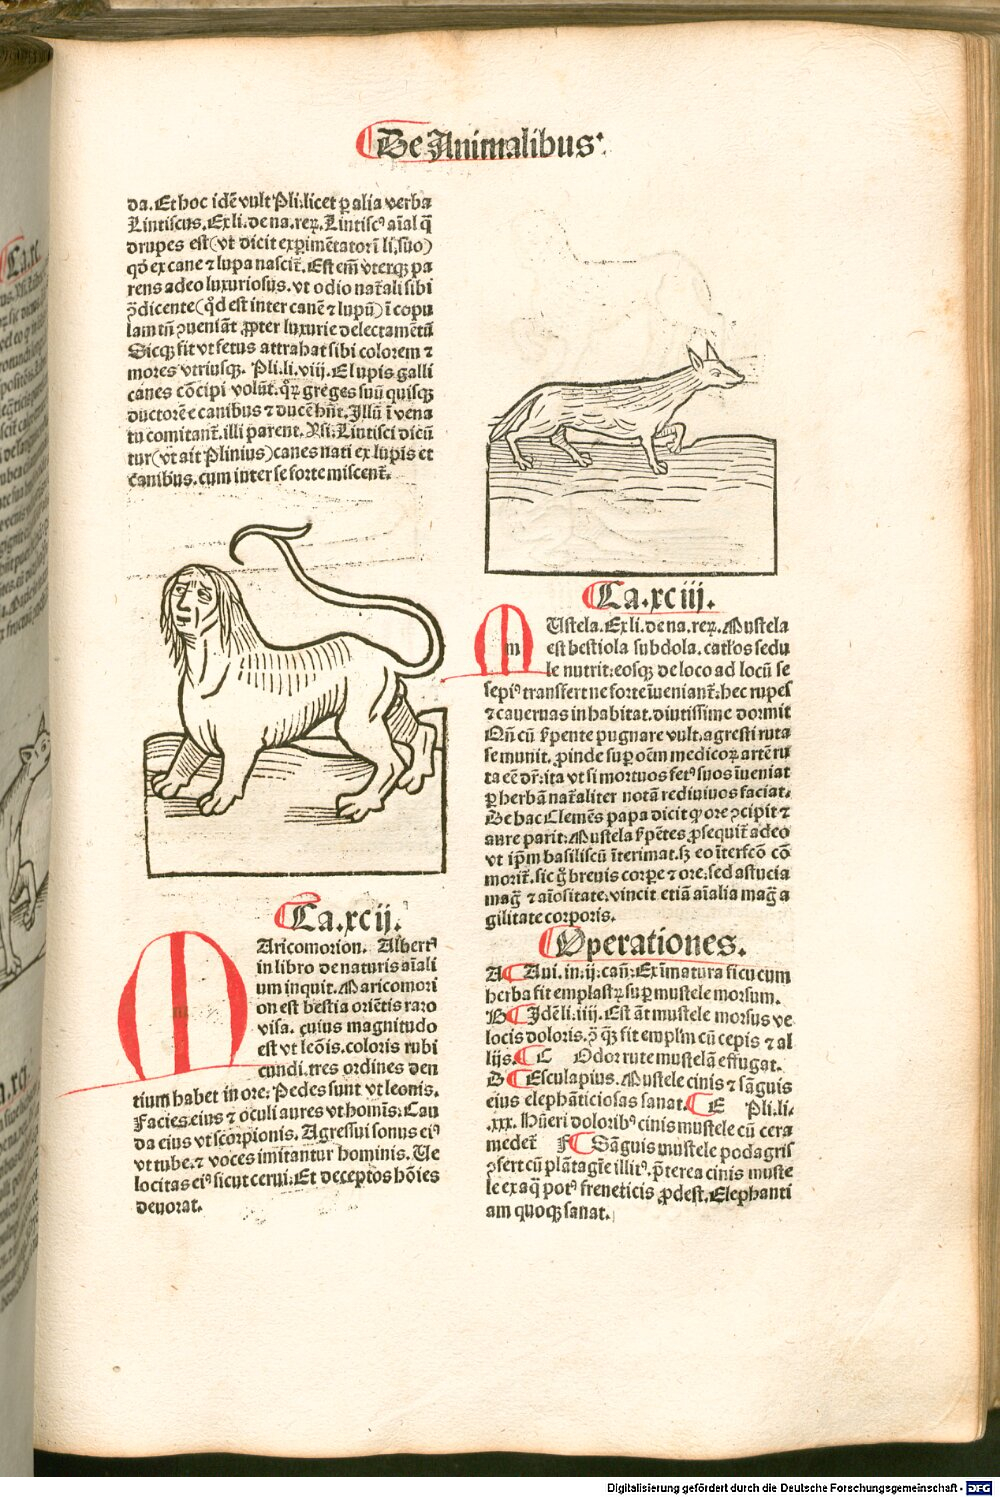 De Animalibus.
da. Et hoc idē vult Pli. licet ꝑ alia verba
Lintiscus. Ex li. de na. reꝝ. Lintiscꝰ aīal q̄
drupes est (vt dicit experimētatorī li. suo)
qđ ex cane ⁊ lupa nascit̄. Est em̄ vterqꝫ pa
rens adeo luxuriosus. vt odio nat̄ali sibi
p̄dicente (qd̄ est inter canē ⁊ lupū) ī copu
lam tn̄ ↄueniāt ꝓpter luxurie delectamētū
Sicqꝫ fit vt fetus attrahat sibi colorem ⁊
mores vtriusqꝫ. Pli. li. viij. E lupis galli
canes cōcipi volūt. qꝝ greges suū quisqꝫ
ductorē e canibus ⁊ ducē hn̄t. Illū ī vena
tu comitant̄. illi parent. Ysi. Lintisci dicū
tur (vt ait Plinius) canes nati ex lupis et
canibus. cum inter se forte miscent̄.
Ca. xcij.
Maricomorion. Albertꝰ
in libro de naturis aīali
um inquit. Maricomori
on est bestia oriētis raro
visa. cuius magnitudo
est vt leōis. coloris rubi
cundi. tres ordines den
tium habet in ore: Pedes sunt vt leonis.
Facies eius ⁊ oculi aures vt homīs: Cau
da eius vt scorpionis. Agressui sonus eiꝰ
vt tube. ⁊ voces imitantur hominis. Ve
locitas eiꝰ sicut cerui: Et deceptos hōies
deuorat.
Ca. xciij.
m
MUstela. Ex li. de na. reꝝ. Mustela
est bestiola subdola. catl'os sedu
le nutrit: eosqꝫ de loco ad locū se
sepiꝰ transfert ne forte īueniant̄: hec rupes
⁊ cauernas inhabitat. diutissime dormit
Qn̄ cū ẜpente pugnare vult. agresti ruta
se munit. ꝓinde suꝑ oēm medicoꝝ artē ru
ta eē dr̄: ita vt si mortuos fetꝰ suos īueniat
ꝑ herbā nat̄aliter notā rediuiuos faciat.
De hac Clemēs papa dicit ꝙ ore ↄcipit ⁊
aure parit: Mustela ẜpētes ꝓsequit̄ adeo
vt ip̄m basiliscū īterimat. sꝫ eo īterfcō cō
morit̄. sic ḡ breuis corpe ⁊ ore. sed astucia
mag̃ ⁊ aīositate. vincit etiā aīalia mag̃ a
gilitate corporis.
Operationes.
A Aui. in. ij. cañ: Ex īmatura sicu cum
herba fit emplastꝝ suꝑ mustele morsum.
B Idē li. iiij. Est āt mustele morsus ve
locis doloris. ꝓ qꝝ fit empl'm cū cepis ⁊ al
lijs. C Odor rute mustelā effugat.
D Esculapius. Mustele cinis ⁊ sāguis
eius elephāticiosas sanat. E Pli. li.
.xxx. Hūeri doloribꝰ cinis mustele cū cera
medet̄ F Sāguis mustele podagris
ↄfert cū plātagīe illitꝰ. p̄terea cinis muste
le ex aq̄ potꝰ freneticis ꝓdest. Elephanti
am quoqꝫ sanat.
Digitalisierung gefördert durch die Deutsche Forschungsgemeinschaft - DFG